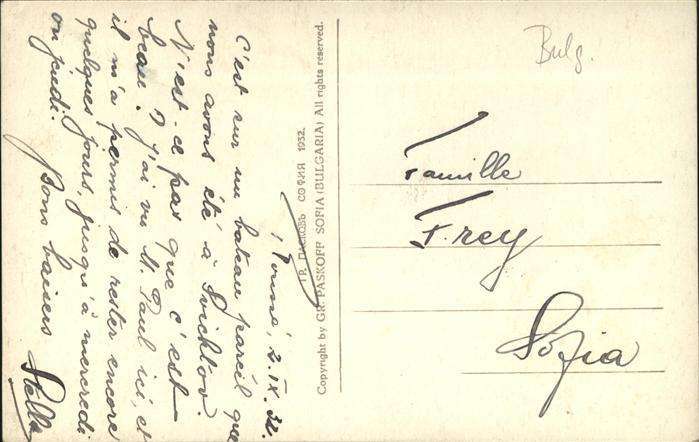 2.IX.32.
C'est sur un bateau pareil que
nous avons été à Svichtov.
N'est-ce pas que c'est
beau? J'ai vu M. Paul ici, et
il m'a permis de rester encore
quelques jours, jusqu'à mercredi
ou jeudi.
Bons baisers
Stella
ГР. ПАСКОВЪ СОФИЯ 1932.
Copyright by GR. PASKOFF SOFIA (BULGARIA) All rights reserved.
Bulg.
Famille
Frey
Sofia